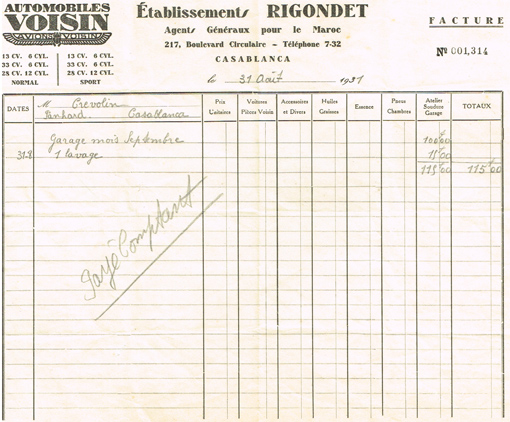 AUTOMOBILES
VOISIN
AVIONS VOISIN
13 CV. 6 CYL. 13 CV. 6 CYL.
33 CV. 6 CYL. 33 CV. 6 CYL.
28 CV. 12 CYL. 28 CV. 12 CYL.
NORMAL SPORT
Établissements RIGONDET
Agents Généraux pour le Maroc
217, Boulevard Circulaire – Téléphone 7-32
CASABLANCA
le 31 Août 1931
FACTURE
Nº 001,314
DATES
M Crevolin
Panhard. Casablanca
Prix Unitaires
Voitures Pièces Voisin
Accessoires et Divers
Huiles Graisses
Essence
Pneus Chambres
Atelier Soudure Garage
TOTAUX
Garage mois Septembre 100f00
31-8 1 lavage 15f00
115f00 115f00
Payé Comptant